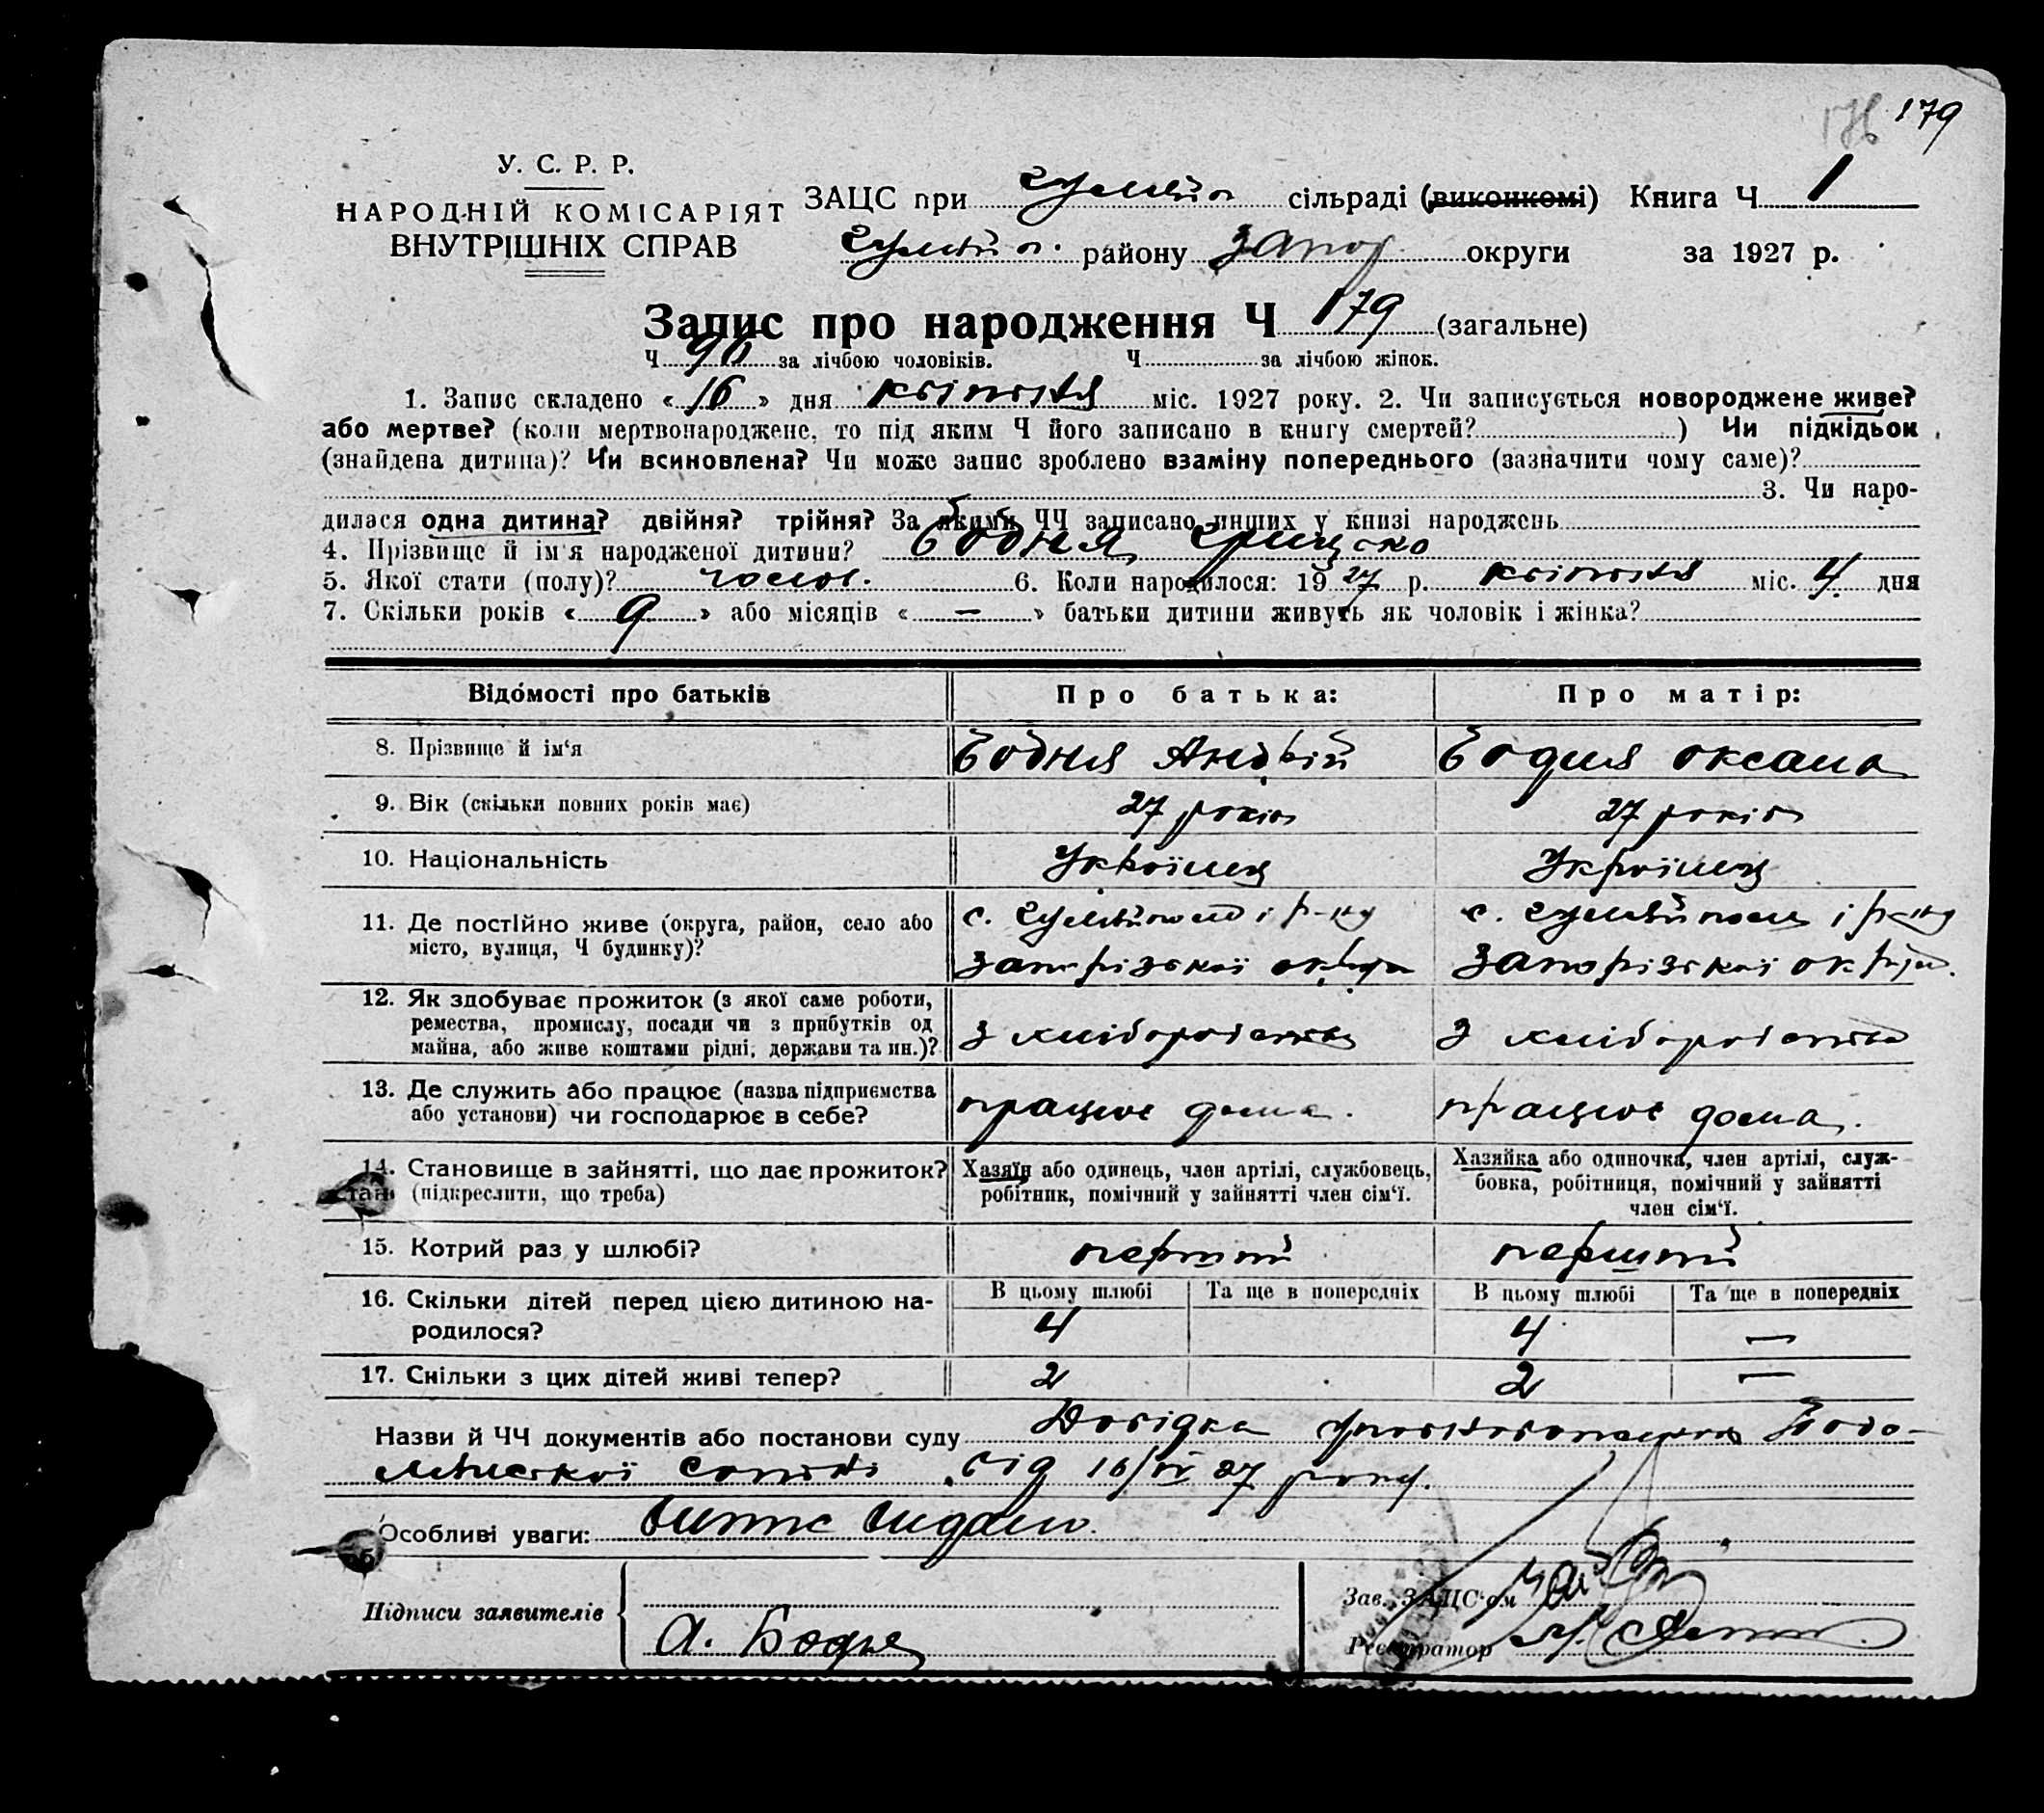 179
У. С. Р. Р.
НАРОДНІЙ КОМІСАРІЯТ
ВНУТРІШНІХ СПРАВ
ЗАЦС при Гуляйп сільраді (виконкомі) Книга Ч 1
Гуляйп. району Запор округи за 1927 р.
Запис про народження Ч 179 (загальне)
Ч 96 за лічбою чоловіків. Ч за лічбою жінок.
1. Запис складено «16» дня квітня міс. 1927 року. 2. Чи записується новороджене живе?
або мертве? (коли мертвонароджене, то під яким Ч його записано в книгу смертей? ) Чи підкідьок
(знайдена дитина)? Чи всиновлена? Чи може запис зроблено взаміну попереднього (зазначити чому саме)?
3. Чи наро-
дилася одна дитина? двійня? трійня? За якими ЧЧ записано инших у книзі народжень
4. Прізвище й ім'я народженої дитини? Бодня Грицско
5. Якої стати (полу)? чолов. 6. Коли народилося: 1927 р. квітня міс. 4 дня
7. Скільки років «9» або місяців «—» батьки дитини живуть як чоловік і жінка?
Відомості про батьків Про батька: Про матір:
8. Прізвище й ім'я Бодня Андрій Бодня Оксана
9. Вік (скільки повних років має) 27 років 27 років
10. Національність Українец Українец
11. Де постійно живе (округа, район, село або с. Гуляйполе і р-ну с. Гуляйполя і р-ну
місто, вулиця, Ч будинку)? Запорізської округи Запорізської округи.
12. Як здобуває прожиток (з якої саме роботи,
ремества, промислу, посади чи з прибутків од З хліборобства З хліборобства
майна, або живе коштами рідні, держави та ин.)?
13. Де служить або працює (назва підприємства працює дома. працює дома.
або установи) чи господарює в себе?
14. Становище в зайнятті, що дає прожиток? Хазяїн або одинець, член артілі, службовець, Хазяйка або одиночка, член артілі, служ-
(підкреслити, що треба) робітник, помічний у зайнятті член сім'ї. бовка, робітниця, помічний у зайнятті
член сім'ї.
15. Котрий раз у шлюбі? перший перший
16. Скільки дітей перед цією дитиною на- В цьому шлюбі Та ще в попередніх В цьому шлюбі Та ще в попередніх
родилося? 4 4 —
17. Скільки з цих дітей живі тепер? 2 2 —
Назви й ЧЧ документів або постанови суду Довідка
сотні від 16/IV 27 року.
Особливі уваги: Витяг видано.
Підписи заявителів
А. Бодня
Зав. ЗАЦС'ом
Реєстратор